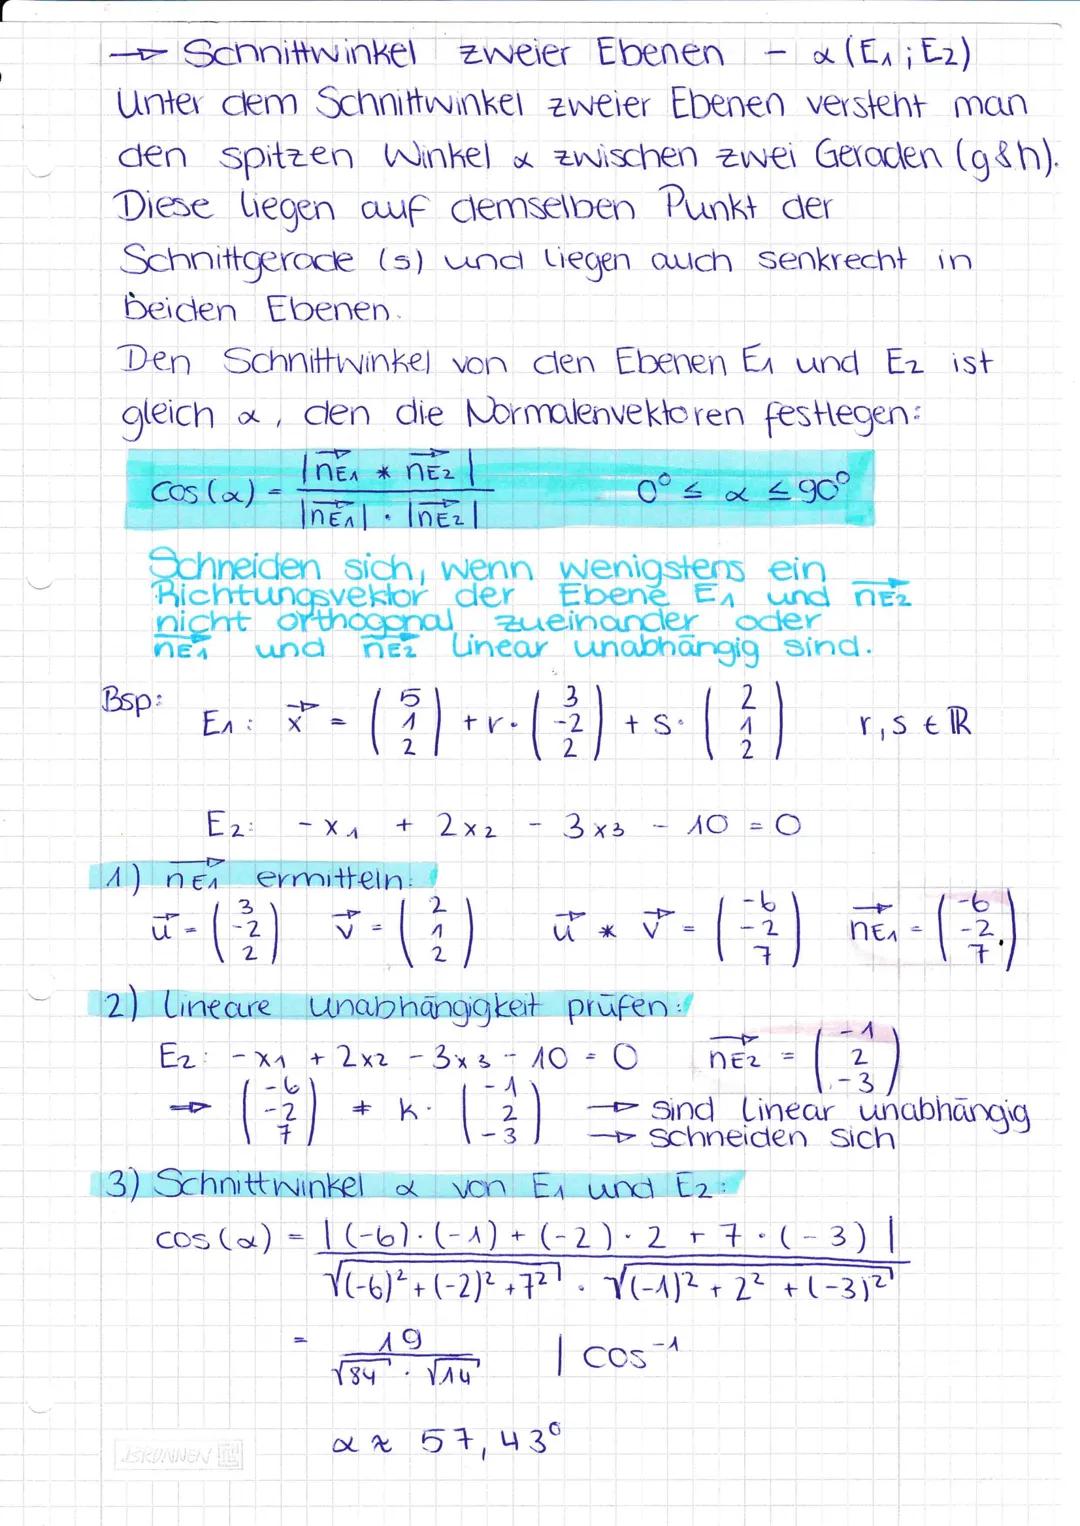 → Schnittwinkel zweier Ebenen - α (E₁ ; E₂)
Unter dem Schnittwinkel zweier Ebenen versteht man
den spitzen Winkel α zwischen zwei Geraden (g&h).
Diese liegen auf demselben Punkt der
Schnittgerade (s) und liegen auch senkrecht in
beiden Ebenen.
Den Schnittwinkel von den Ebenen E₁ und E₂ ist
gleich α, den die Normalenvektoren festlegen:
cos(α) = |n⃗E₁ * n⃗E₂| / (|n⃗E₁| · |n⃗E₂|) 0° ≤ α ≤ 90°
Schneiden sich, wenn wenigstens ein
Richtungsvektor der Ebene E₁ und n⃗E₂
nicht orthogonal zueinander oder
n⃗E₁ und n⃗E₂ linear unabhängig sind.
Bsp:
E₁: x⃗ = (5 1 2) + r · (3 -2 2) + s · (2 1 2) r,s ∈ ℝ
E₂: -x₁ + 2x₂ - 3x₃ - 10 = 0
1) n⃗E₁ ermitteln:
u⃗ = (3 -2 2) v⃗ = (2 1 2) u⃗ * v⃗ = (-6 -2 7) n⃗E₁ = (-6 -2 7)
2) lineare unabhängigkeit prüfen:
E₂: -x₁ + 2x₂ - 3x₃ - 10 = 0 n⃗E₂ = (-1 2 -3)
→ (-6 -2 7) ≠ k · (-1 2 -3) → sind linear unabhängig
→ schneiden sich
3) Schnittwinkel α von E₁ und E₂:
cos(α) = |(-6)·(-1) + (-2)·2 + 7·(-3)| / (√((-6)² + (-2)² + 7²) · √((-1)² + 2² + (-3)²))
= 19 / (√84 · √14) | cos⁻¹
α ≈ 57,43°